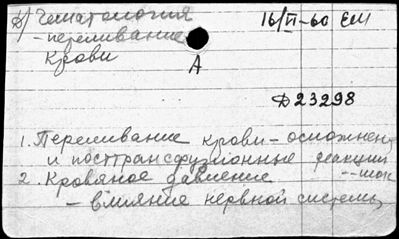 д) Гематология 16/VI-60 ЕМ
- переливание
крови
А
Д 23298
1. Переливание крови - осложнен.
и посттрансфузионные реакции
2. Кровяное давление -- шок
- влияние нервной системы